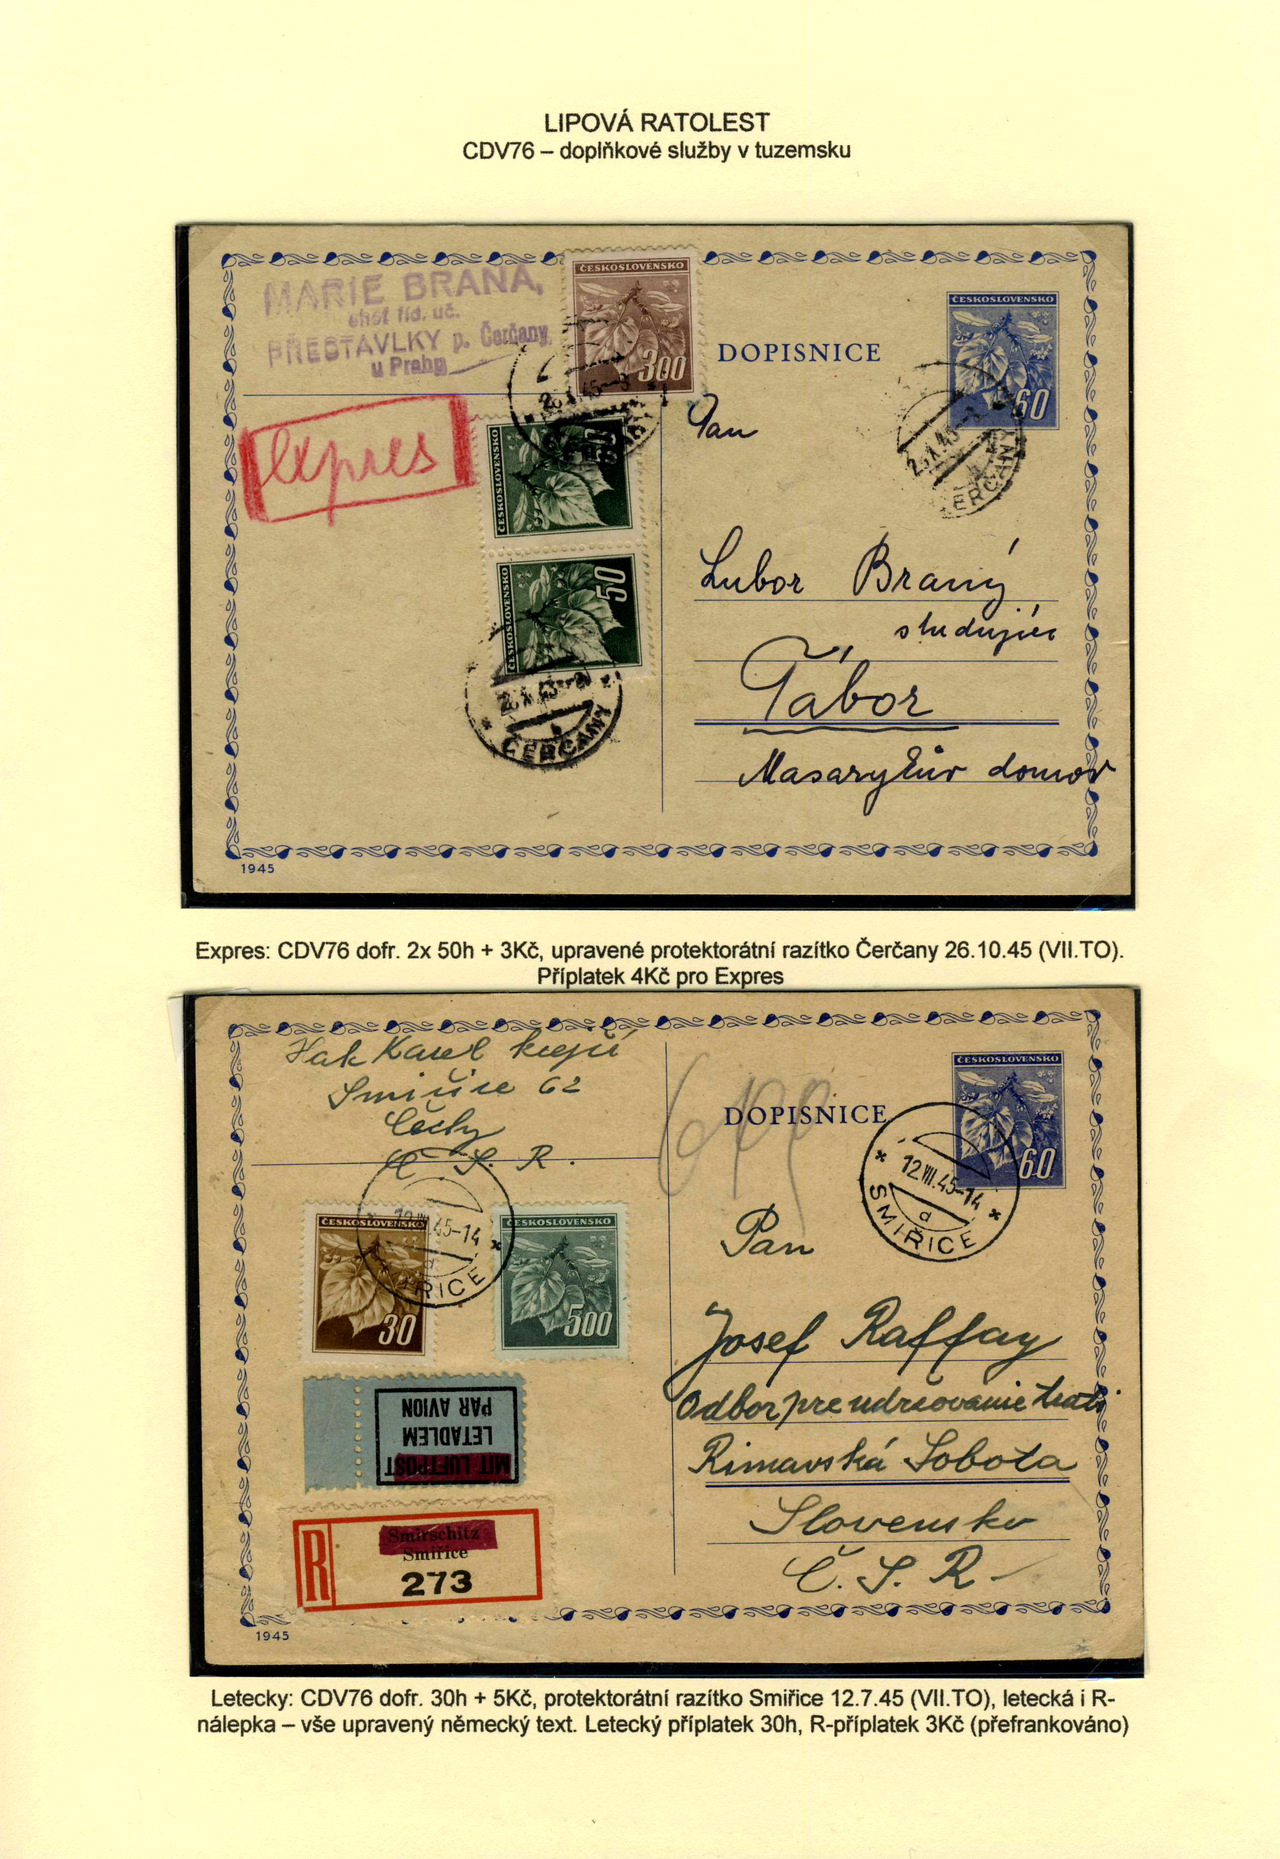 LIPOVÁ RATOLEST
CDV76 – doplňkové služby v tuzemsku
MARIE BRANA,
šhéf říd. uč.
PŘESTAVLKY p. Čerčany
u Prahy
ČESKOSLOVENSKO
300
DOPISNICE
ČESKOSLOVENSKO
60
expres
ČESKOSLOVENSKO
50
ČESKOSLOVENSKO
50
ČERČANY
ČERČANY
Pan
Lubor Braný
studující
Tábor
Masarykův domov
1945
Expres: CDV76 dofr. 2x 50h + 3Kč, upravené protektorátní razítko Čerčany 26.10.45 (VII.TO).
Příplatek 4Kč pro Expres
Hak Karel
Smiřice 62
Čechy
Č. S. R.
DOPISNICE
ČESKOSLOVENSKO
60
12.VII.45-14
d
SMIŘICE
12.VII.45-14
d
SMIŘICE
ČESKOSLOVENSKO
30
ČESKOSLOVENSKO
500
MIT LUFTPOST
LETADLEM
PAR AVION
R
Smirschitz
Smiřice
273
Pan
Josef Raffay
Odbor pre udrzovanie trati
Rimavská Sobota
Slovensko
Č. S. R.
1945
Letecky: CDV76 dofr. 30h + 5Kč, protektorátní razítko Smiřice 12.7.45 (VII.TO), letecká i R-
nálepka – vše upravený německý text. Letecký příplatek 30h, R-příplatek 3Kč (přefrankováno)